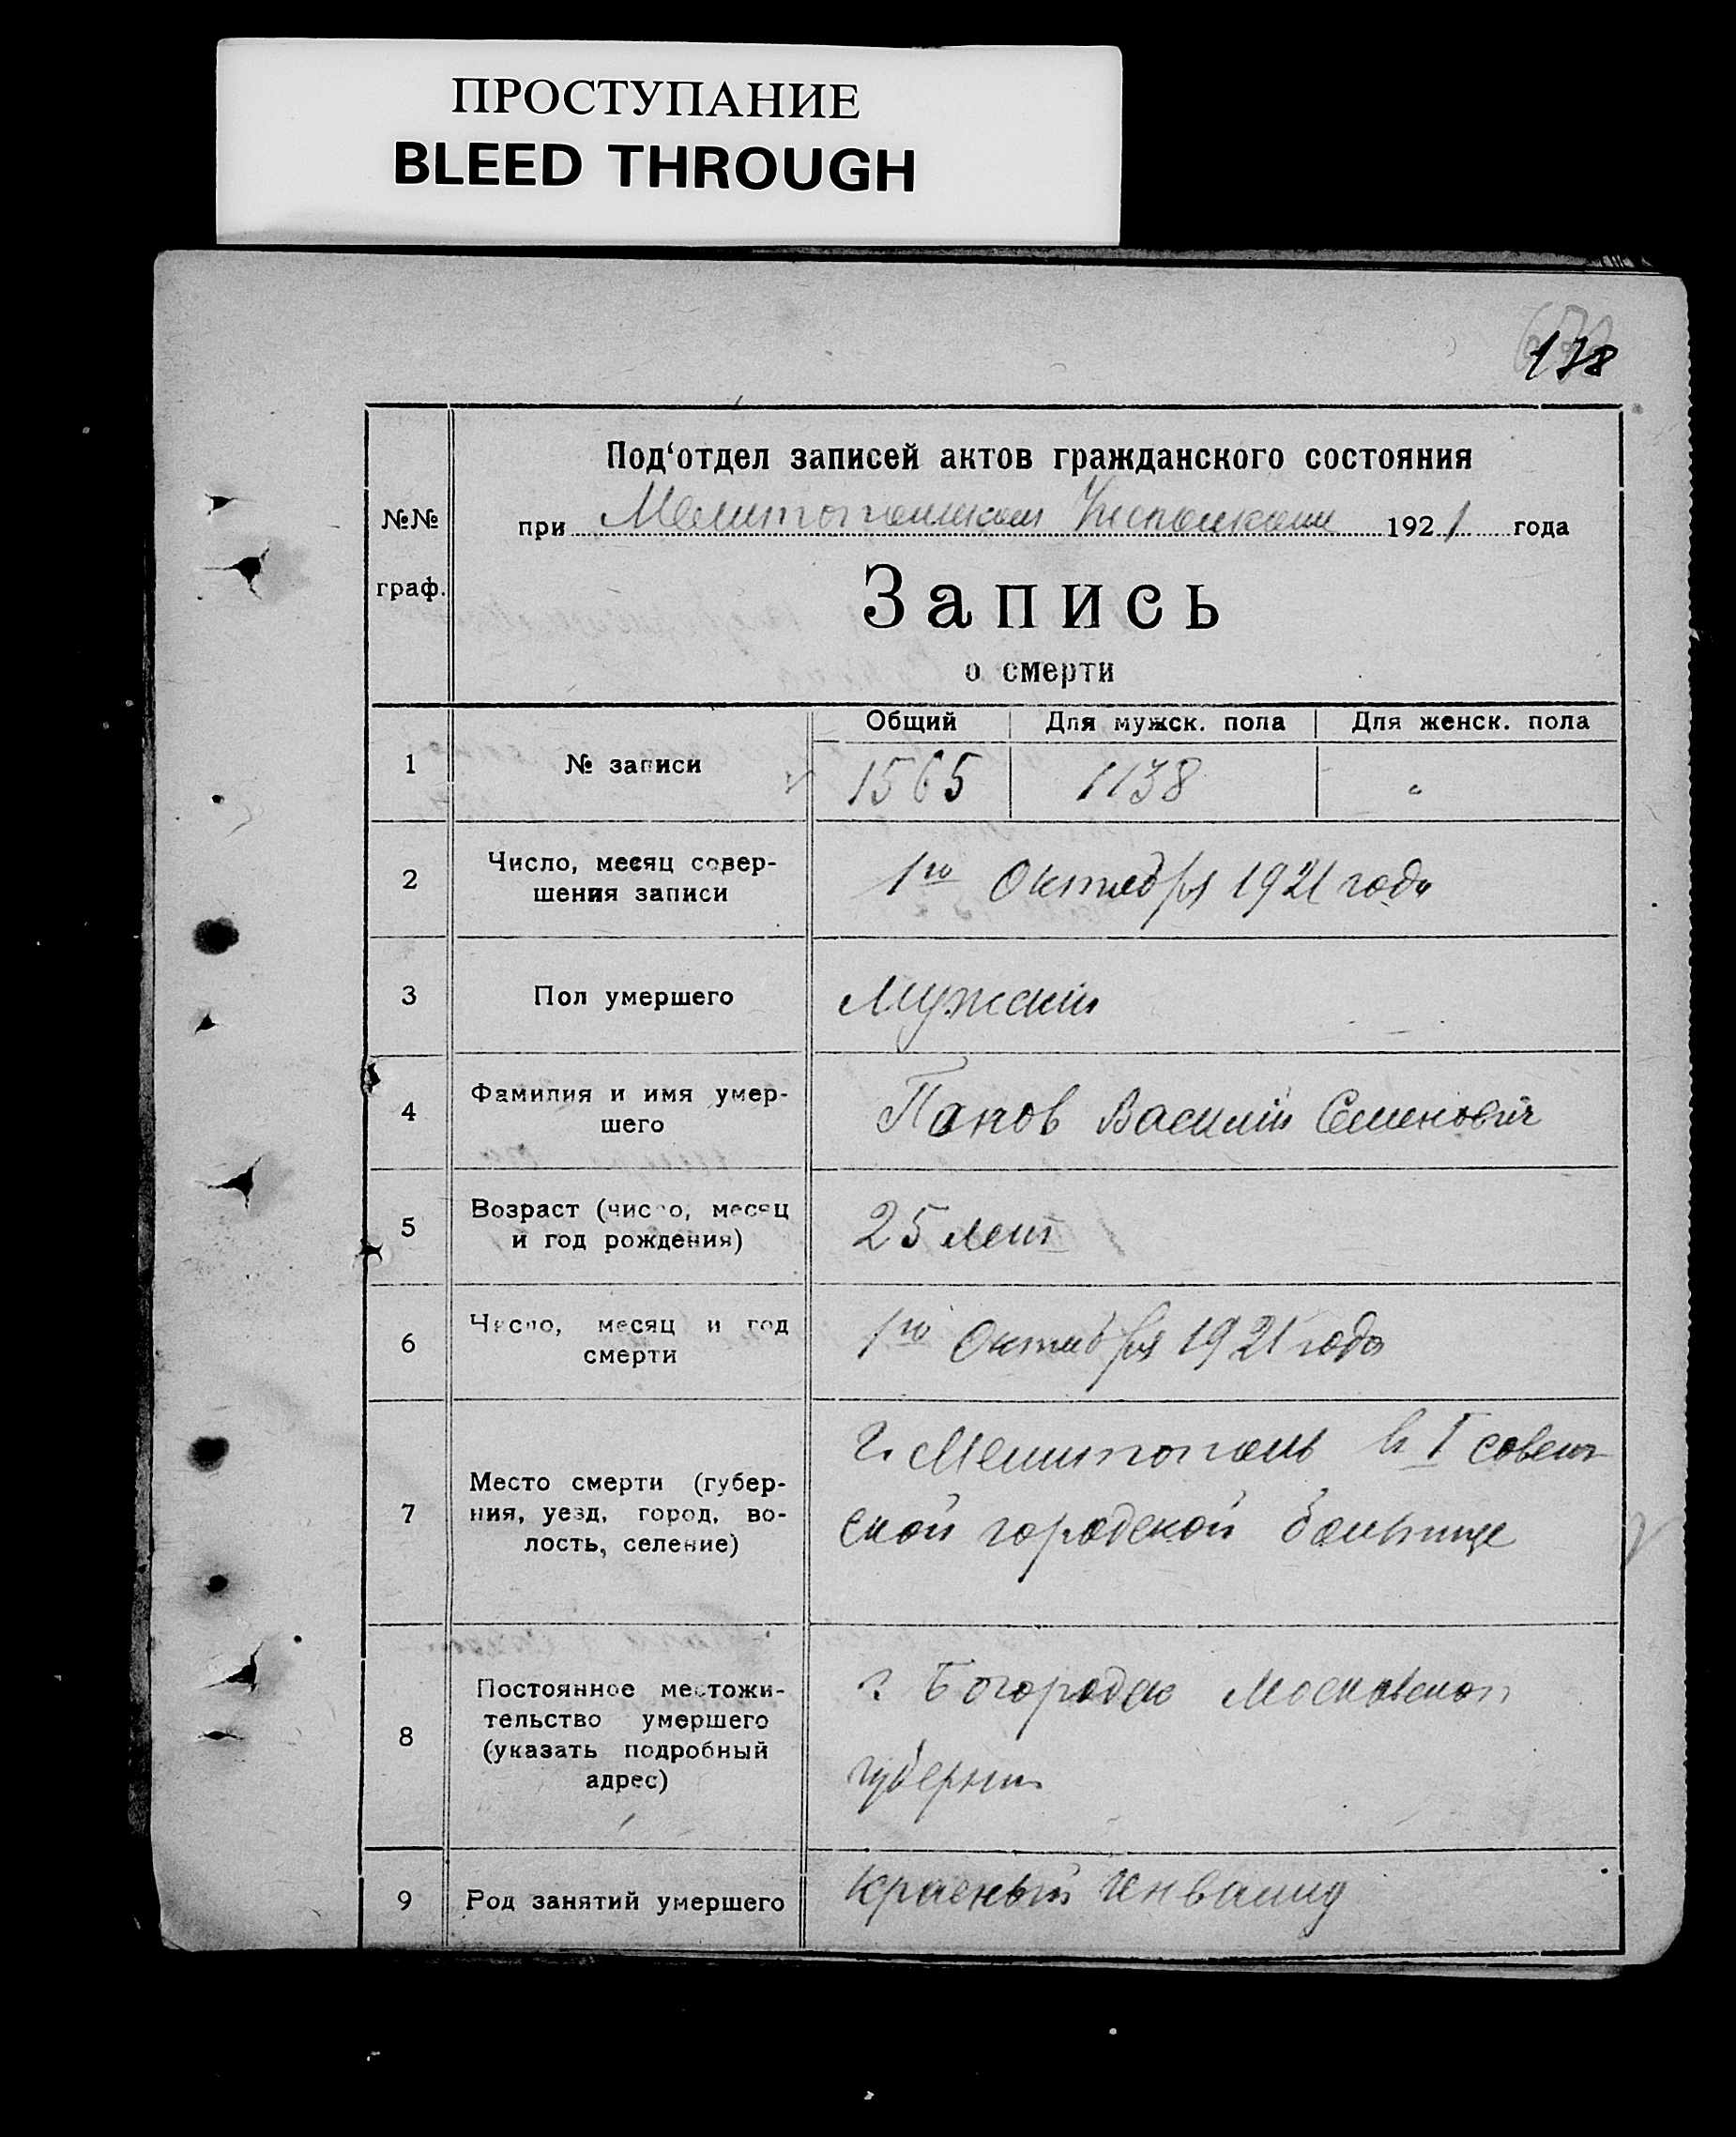 ПРОСТУПАНИЕ
BLEED THROUGH
138
Под‘отдел записей актов гражданского состояния
№№
граф.
при Мелитопольском Исполкоме 1921 года
Запись
о смерти
Общий Для мужск. пола Для женск. пола
1 № записи 1565 1138 "
2 Число, месяц совер-
шения записи
1го Октября 1921 года
3 Пол умершего Мужский
4 Фамилия и имя умер-
шего
Панов Василий Семенович
5 Возраст (число, месяц
и год рождения)
25 лет
6 Число, месяц и год
смерти
1го Октября 1921 года
7 Место смерти (губер-
ния, уезд, город, во-
лость, селение)
г. Мелитополь в I совет
ской городской больнице
8 Постоянное местожи-
тельство умершего
(указать подробный
адрес)
г Богородск Московской
губернии
9 Род занятий умершего Красный Инвалид